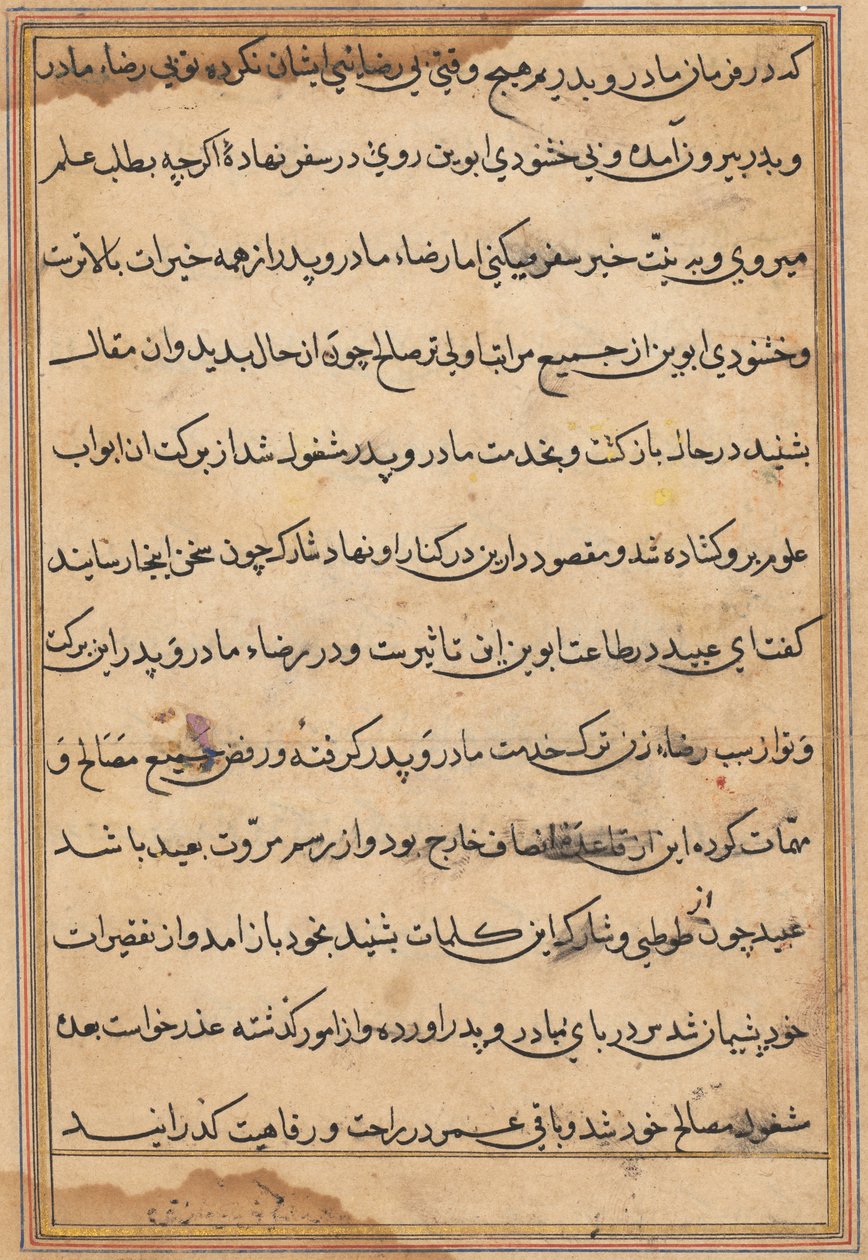 که در فرمان مادر و پدر بر هیچ وقتی بی رضائی ایشان نکرده تو بی رضاء مادر
و پدر بیرون آمدۀ و بی خشنودي ابوین روئ در سفر نهادۀ اکرچه بطلب علم
میروي و به نیّت خیر سفر میکنی اما رضاء مادر و پدر از همه خیرات بالاترست
و خشنودي ابوین از جمیع مراتب اولی تر صالح چون ان حال بدید وان مقال
بشنید در حال باز کشت و بخدمت مادر و پدر مشغول شد از برکت ان ابواب
علوم برو کشاده شد و مقصود دارین در کنار او نهاد شارک چون سخن اینجا رسانید
کفت اي عبید در طاعت ابوین این تاثیرست و در رضاء مادر وَ پدر این برکت
وَ تو از سبب رضاء زن ترک خدمت مادر وَ پدر کرفتۀ و رفض جمیع مَصَالح وَ
مهّمات کردۀ این از قاعدۀ انصاف خارج بود و از رسم مروّت بعید باشد
عبید چون از طوطی و شارک این کلمات بشنید بخود باز امد و از تقصیرات
خود پشیمان شد سر در پاي مادر و پدر اورده و از امور کذشته عذر خواست بعدۀ
مشغول مصالح خود شد و باقی عمر در راحت و رفاهیت کذرانید